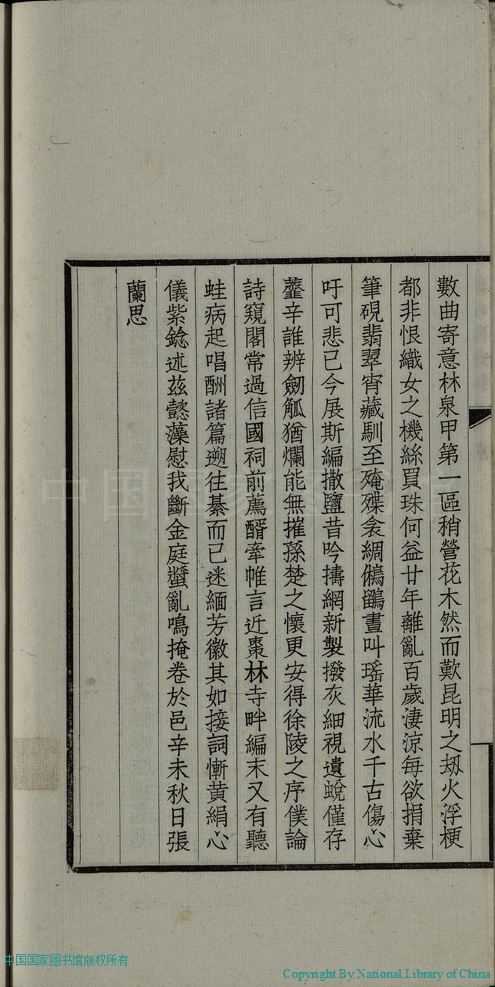 數曲寄意林泉甲第一區稍營花木然而歎昆明之刼火浮梗
都非恨織女之機絲買珠何益廿年離亂百歲淒涼每欲捐棄
筆硯翡翠宵藏馴至殗殜衾裯鵂鶹晝叫瑤華流水千古傷心
吁可悲已今展斯編撒鹽昔吟擣網新製撥灰細視遺蛻僅存
虀辛誰辨劒觚猶爛能無摧孫楚之懷更安得徐陵之序僕論
詩窺閣常過信國祠前薦醑牽帷言近棗林寺畔編末又有聽
蛙病起唱酬諸篇遡往綦而已迷緬芳徽其如接詞慚黃絹心
儀紫錜述茲懿藻慰我斷金庭蠥亂鳴掩卷於邑辛未秋日張
蘭思
中国国家图书馆版权所有
Copyright By National Library of China